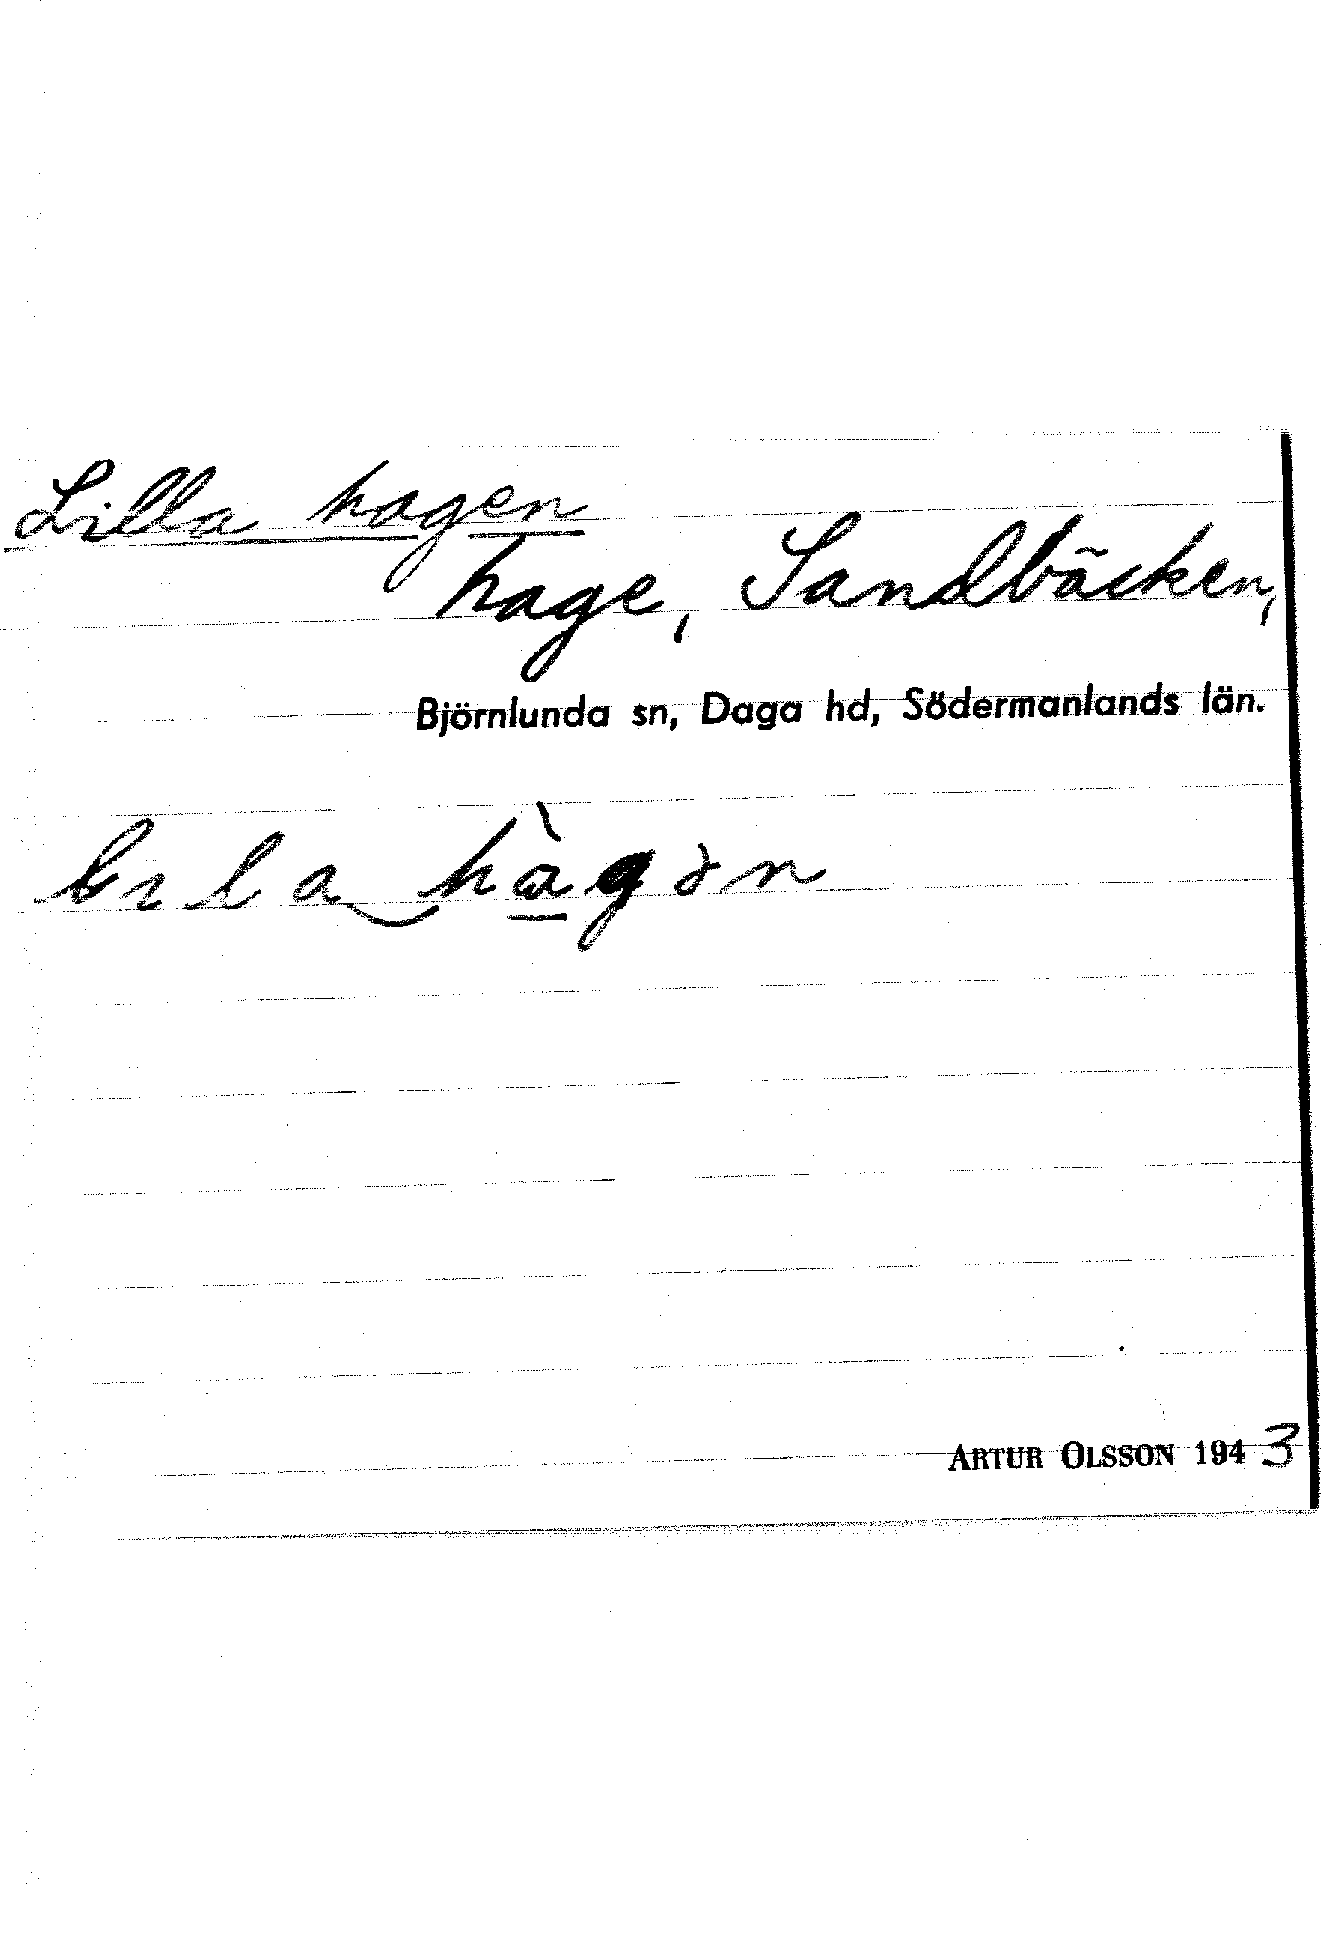 Lilla hagen
hage, Sandbäcken,
Björnlunda sn, Daga hd, Södermanlands län.
ARTUR OLSSON 1943